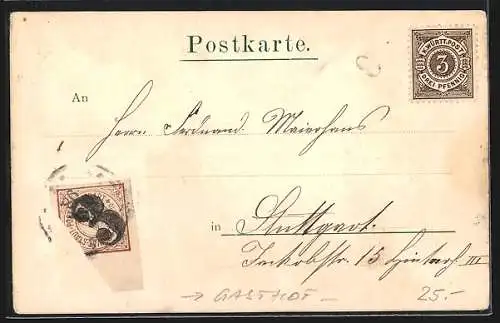 Postkarte.
K. WÜRTT. POST
3
DREI PFENNIG
An
Herrn Ferdinand Maierhans
in Stuttgart.
Jakobstr. 13 Hinterh III
→ GASTHOF —
25.-